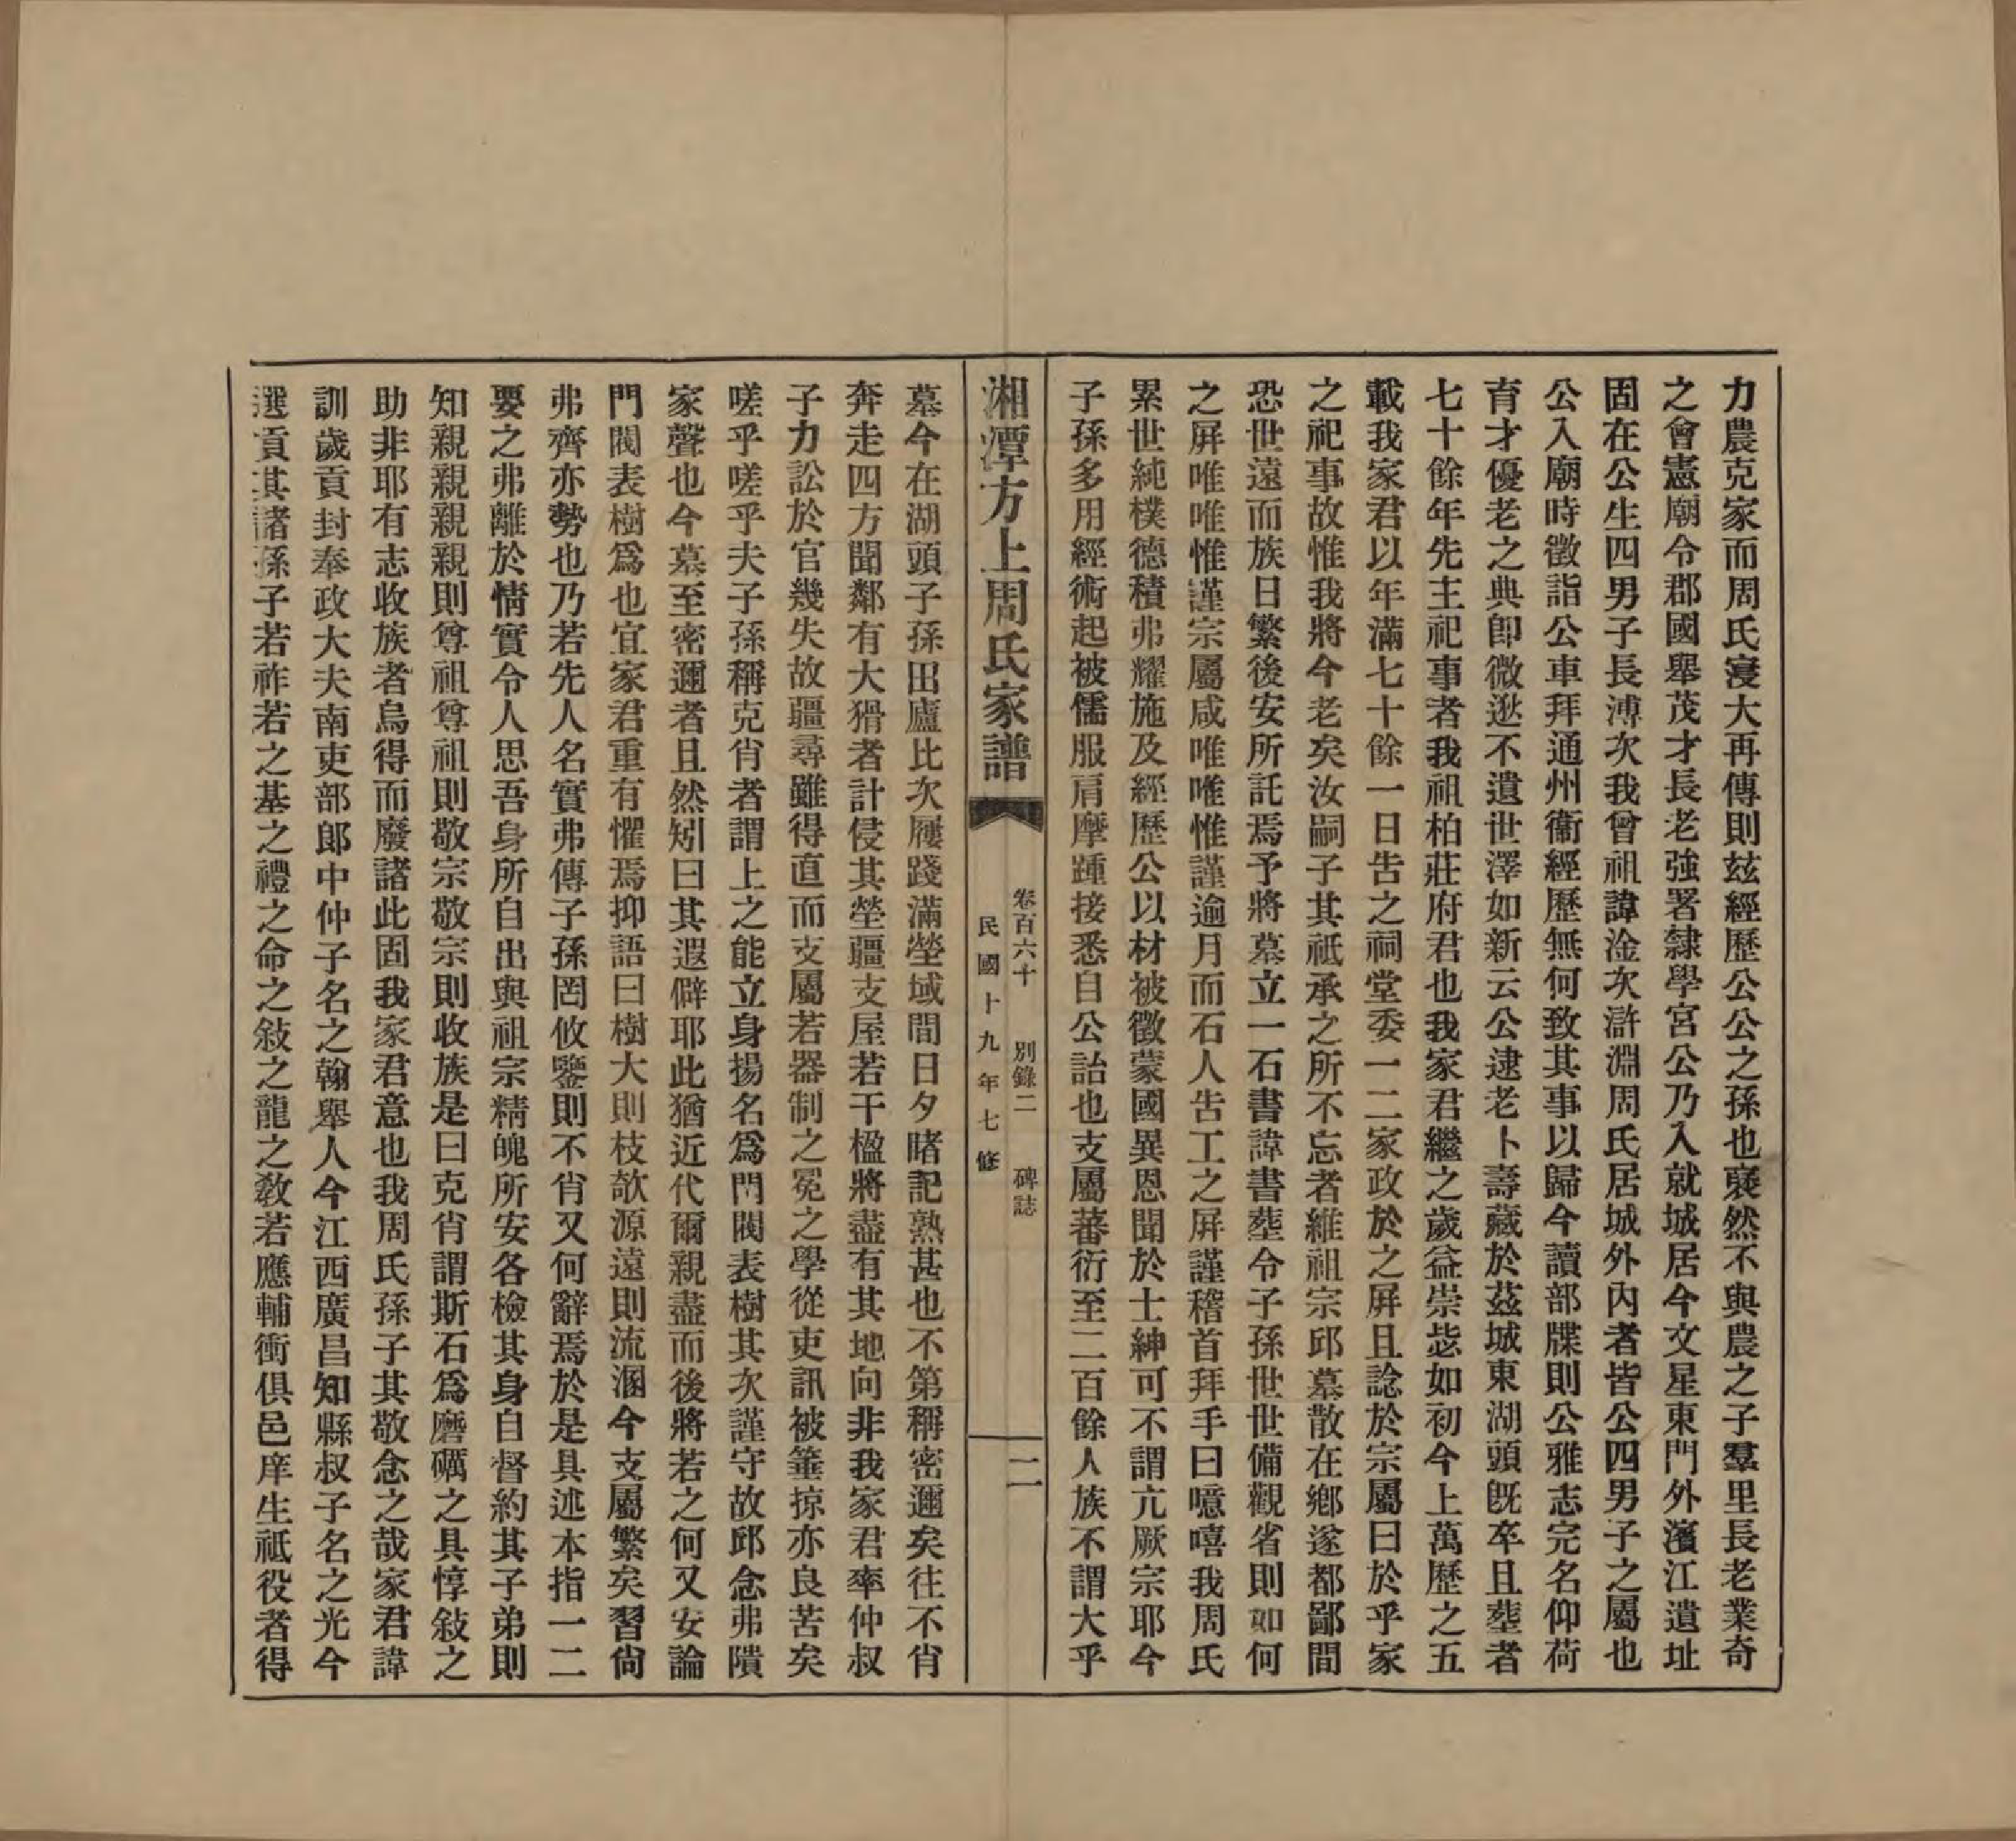 力農克家而周氏寖大再傳則玆經歷公公之孫也裒然不與農之子羣里長老業奇
之會憲廟令郡國舉茂才長老強署隸學宮公乃入就城居今文星東門外濱江遺址
固在公生四男子長溥次我曾祖諱淦次滸淵周氏居城外內者皆公四男子之屬也
公入廟時徵詣公車拜通州衞經歷無何致其事以歸今讀部牒則公雅志完名仰荷
育才優老之典卽微逖不遺世澤如新云公逮老卜壽藏於茲城東湖頭旣卒且葬者
七十餘年先主祀事者我祖柏莊府君也我家君繼之歲益崇毖如初今上萬歷之五
載我家君以年滿七十餘一日告之祠堂委一二家政於之屛且諗於宗屬曰於乎家
之祀事故惟我將今老矣汝嗣子其祗承之所不忘者維祖宗邱墓散在鄕遂都鄙間
恐世遠而族日繁後安所託焉予將墓立一石書諱書葬令子孫世世備觀省則如何
之屛唯唯惟謹宗屬咸唯唯惟謹逾月而石人吿工之屛謹稽首拜手曰噫嘻我周氏
累世純樸德積弗耀施及經歷公以材被徵蒙國異恩聞於士紳可不謂亢厥宗耶今
子孫多用經術起被儒服肩摩踵接悉自公詒也支屬蕃衍至二百餘人族不謂大乎
湘潭方上周氏家譜
卷百六十　別錄二　碑誌
民國十九年七修
二
墓今在湖頭子孫田廬比次屨踐滿塋域間日夕睹記熟甚也不第稱密邇矣往不肖
奔走四方聞鄰有大猾者計侵其塋疆支屋若干楹將盡有其地向非我家君率仲叔
子力訟於官幾失故疆尋雖得直而支屬若器制之冤之學從吏訊被箠掠亦良苦矣
嗟乎嗟乎夫子孫稱克肖者謂上之能立身揚名爲門閥表樹其次謹守故邱念弗隤
家聲也今墓至密邇者且然矧曰其遐僻耶此猶近代爾親盡而後將若之何又安論
門閥表樹爲也宜家君重有懼焉抑語曰樹大則枝欹源遠則流溷今支屬繁矣習尙
弗齊亦勢也乃若先人名實弗傳子孫罔攸鑒則不肖又何辭焉於是具述本指一二
要之弗離於情實令人思吾身所自出與祖宗精魄所安各檢其身自督約其子弟則
知親親親親則尊祖尊祖則敬宗敬宗則收族是曰克肖謂斯石爲磨礪之具惇敍之
助非耶有志收族者烏得而廢諸此固我家君意也我周氏孫子其敬念之哉家君諱
訓歲貢封奉政大夫南吏部郞中仲子名之翰舉人今江西廣昌知縣叔子名之光今
選貢其諸孫子若祚若之基之禮之命之敍之龍之敎若應輔衝俱邑庠生祗役者得